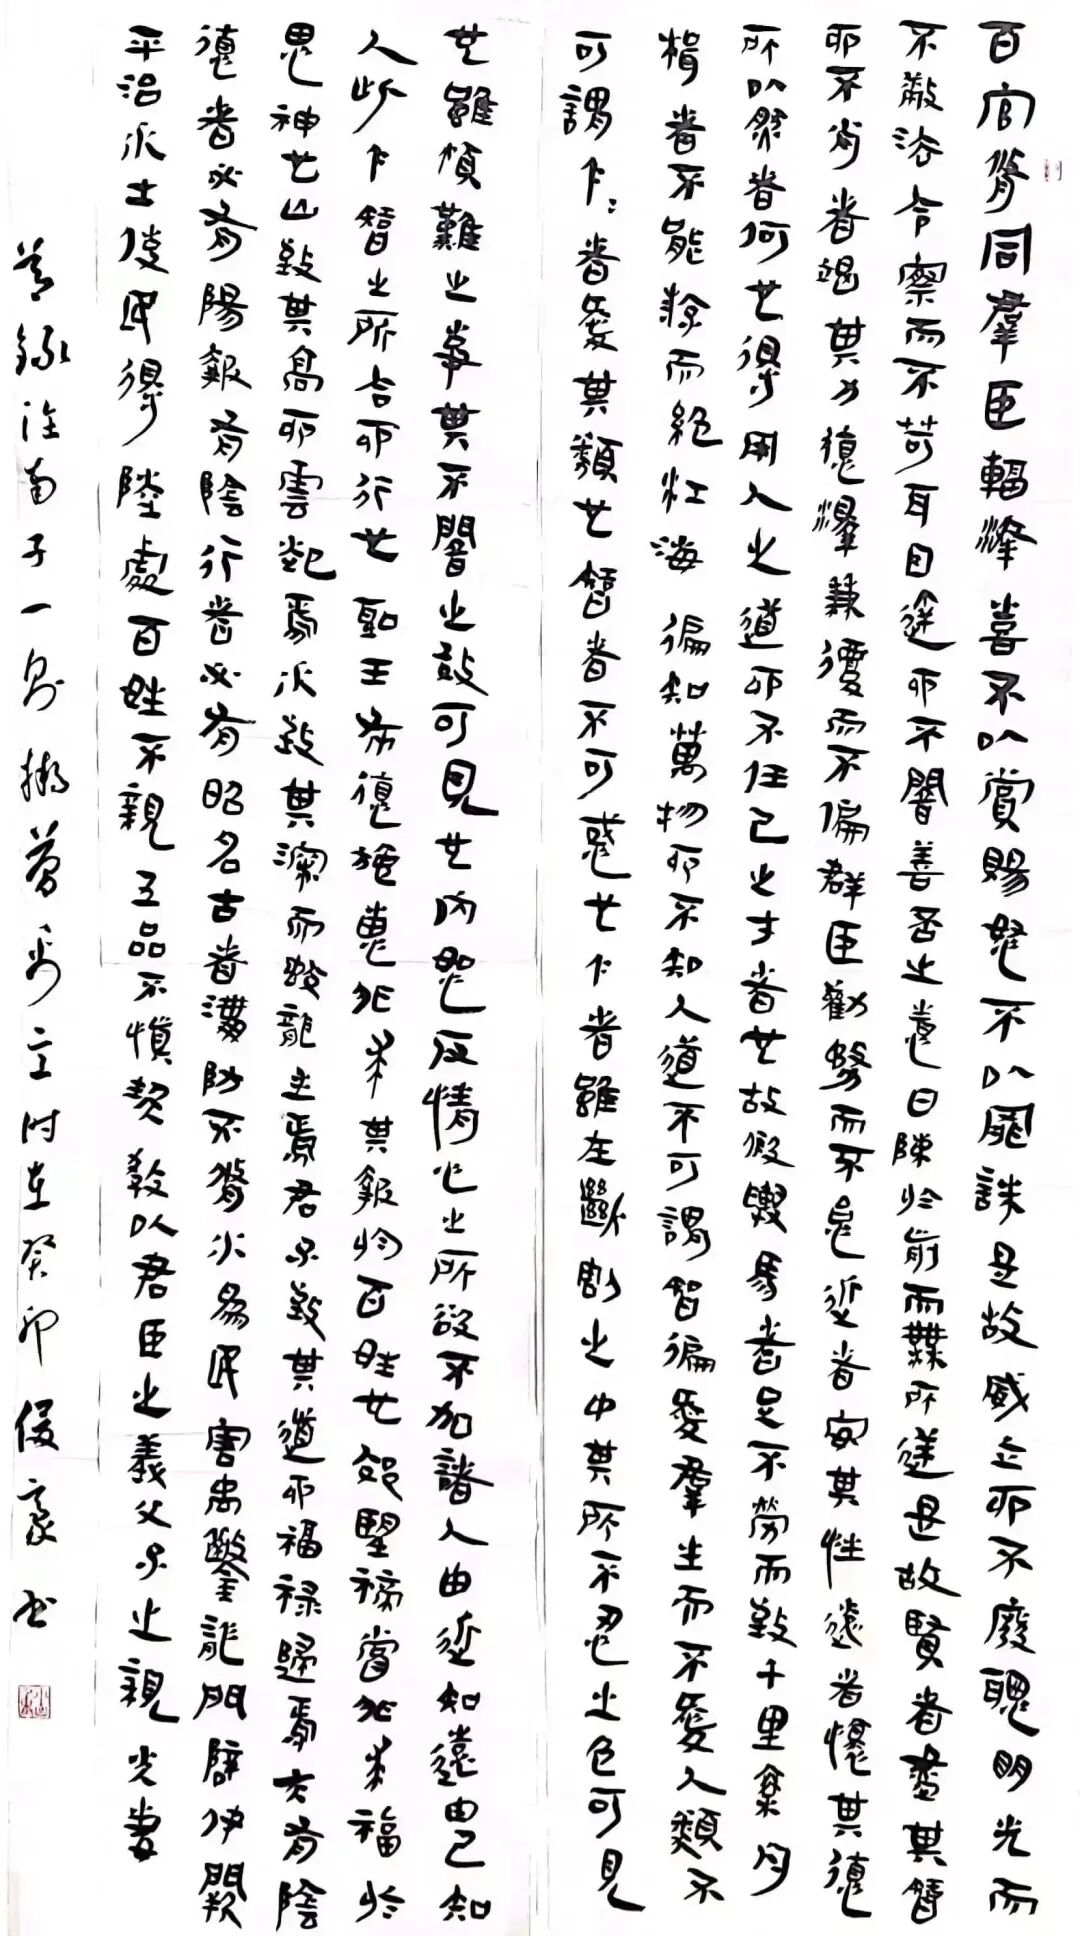 百官脩同羣臣輻湊喜不以賞賜怒不以罪誅是故威立而不廢聰明光而
不蔽法令察而不苛耳目達而不闇善否之情日陳於前而無所逆是故賢者盡其智
而不肖者竭其力德澤兼覆而不偏群臣勸務而不怠近者安其性遠者懷其德
所以然者何也得用人之道而不任己之才者也故假輿馬者足不勞而致千里乘舟
楫者不能游而絕江海徧知萬物而不知人道不可謂智徧愛羣生而不愛人類不
可謂仁仁者愛其類也智者不可惑也仁者雖在斷割之中其所不忍之色可見
也雖煩難之事其不闇之效可見也內恕反情心之所欲不加諸人由近知遠由己知
人此仁智之所合而行也聖王布德施惠非求其報於百姓也郊望禘嘗非求福於
鬼神也山致其高而雲起焉水致其深而蛟龍生焉君子致其道而福祿歸焉夫有陰
德者必有陽報有陰行者必有昭名古者溝防不脩水為民害禹鑿龍門辟伊闕
平治水土使民得陸處百姓不親五品不慎契教以君臣之義父子之親夫妻
節錄淮南子一則 時在癸卯 豪書